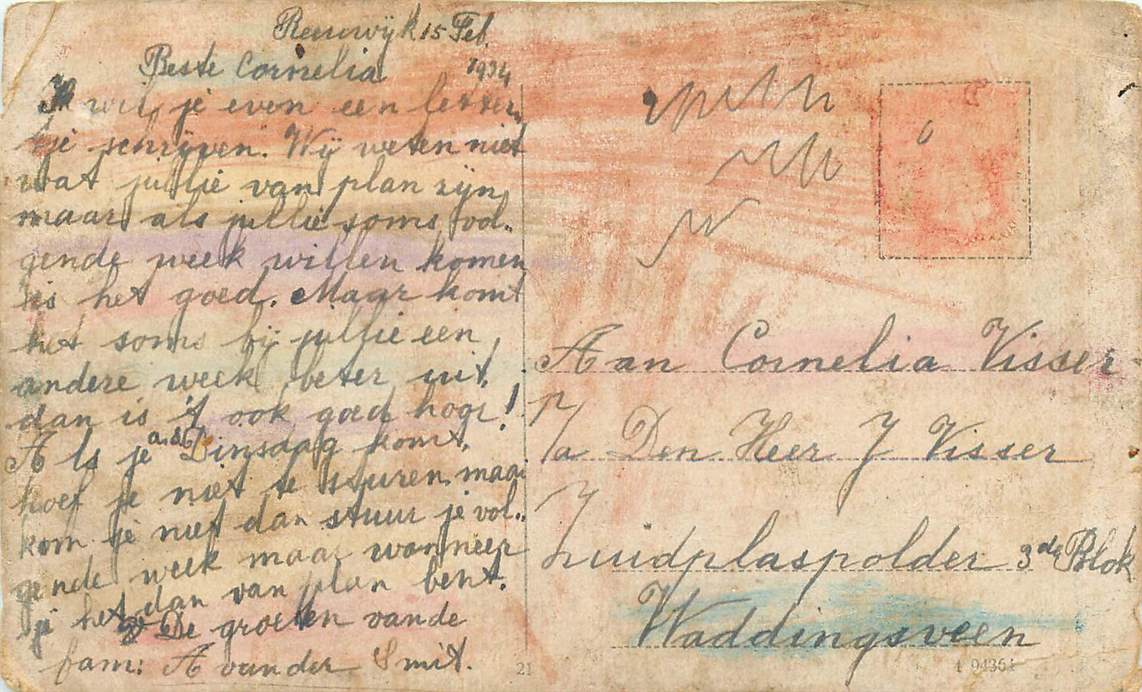 Reeuwijk 15 Feb.
1934
Beste Cornelia
Ik wil je even een letter
tje schrijven. Wij weten niet
wat jullie van plan zijn,
maar als jullie soms vol-
gende week willen komen
is het goed. Maar komt
het soms bij jullie een
andere week beter uit,
dan is 't ook goed hoor!
Als je a.s. Dinsdag komt,
hoef je niet te sturen, maar
kom je niet dan stuur je vol-
gende week maar wanneer
je het dan van plan bent.
De groeten vande
fam: A van der Smit.
Aan Cornelia Visser
p/a Den Heer J Visser
Zuidplaspolder 3de Blok
Waddingsveen
21